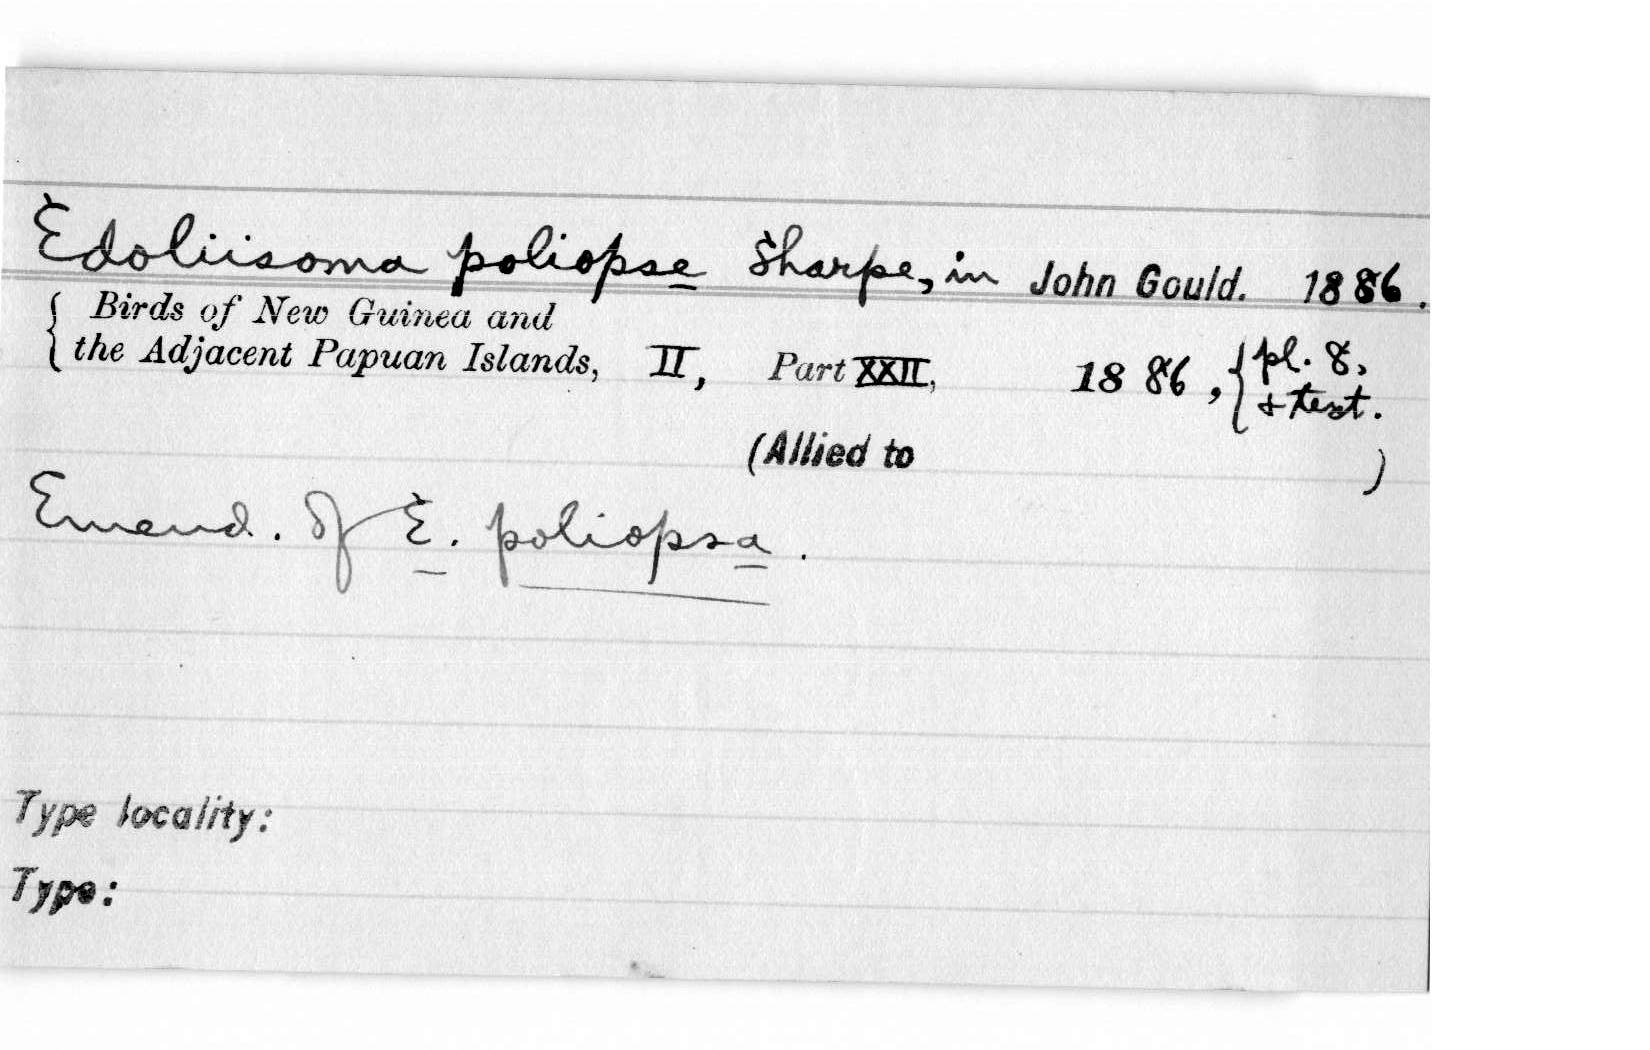 Edoliisoma poliopse Sharpe, in John Gould. 1886.
{ Birds of New Guinea and
the Adjacent Papuan Islands, II, Part XXII, 1886, { pl. 8,
& text.
(Allied to )
Emend. of E. poliopsa.
Type locality:
Type: